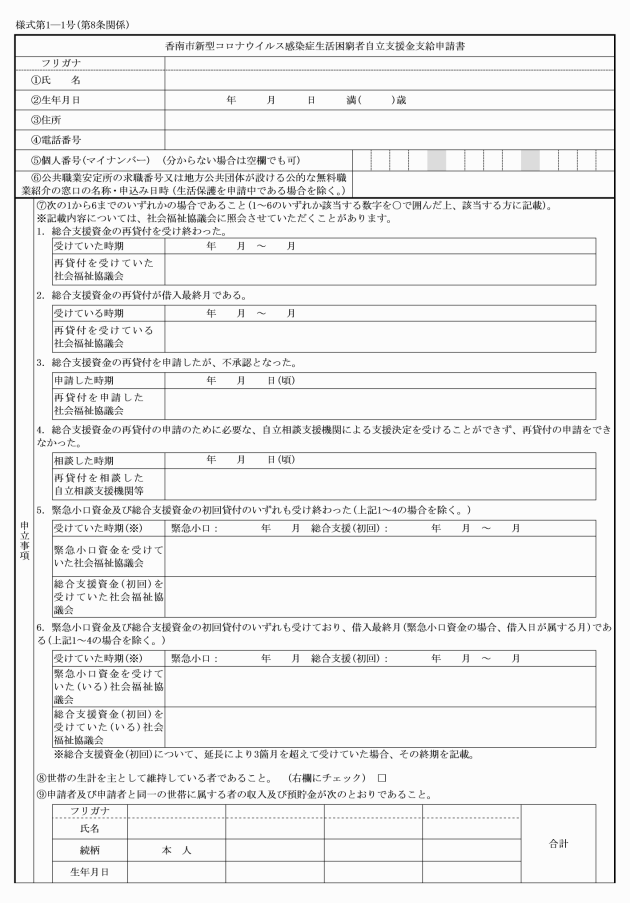 様式第1―1号(第8条関係)
香南市新型コロナウイルス感染症生活困窮者自立支援金支給申請書
フリガナ
①氏　名
②生年月日　　年　　月　　日　　満(　　)歳
③住所
④電話番号
⑤個人番号(マイナンバー)　(分からない場合は空欄でも可)
⑥公共職業安定所の求職番号又は地方公共団体が設ける公的な無料職
業紹介の窓口の名称・申込み日時(生活保護を申請中である場合を除く。)
申立事項
⑦次の1から6までのいずれかの場合であること(1～6のいずれか該当する数字を〇で囲んだ上、該当する方に記載)。
※記載内容については、社会福祉協議会に照会させていただくことがあります。
1．総合支援資金の再貸付を受け終わった。
受けていた時期　　年　　月　～　　月
再貸付を受けていた
社会福祉協議会
2．総合支援資金の再貸付が借入最終月である。
受けている時期　　年　　月　～　　月
再貸付を受けている
社会福祉協議会
3．総合支援資金の再貸付を申請したが、不承認となった。
申請した時期　　年　　月　　日(頃)
再貸付を申請した
社会福祉協議会
4．総合支援資金の再貸付の申請のために必要な、自立相談支援機関による支援決定を受けることができず、再貸付の申請をでき
なかった。
相談した時期　　年　　月　　日(頃)
再貸付を相談した
自立相談支援機関等
5．緊急小口資金及び総合支援資金の初回貸付のいずれも受け終わった(上記1～4の場合を除く。)
受けていた時期(※)　緊急小口：　　年　　月　総合支援(初回)：　　年　　月　～　　月
緊急小口資金を受けて
いた社会福祉協議会
総合支援資金(初回)を
受けていた社会福祉協
議会
6．緊急小口資金及び総合支援資金の初回貸付のいずれも受けており、借入最終月(緊急小口資金の場合、借入日が属する月)であ
る(上記1～4の場合を除く。)
受けていた時期(※)　緊急小口：　　年　　月　総合支援(初回)：　　年　　月　～　　月
緊急小口資金を受けて
いた(いる)社会福祉協
議会
総合支援資金(初回)を
受けていた(いる)社会
福祉協議会
※総合支援資金(初回)について、延長により3箇月を超えて受けていた場合、その終期を記載。
⑧世帯の生計を主として維持している者であること。　(右欄にチェック)　□
⑨申請者及び申請者と同一の世帯に属する者の収入及び預貯金が次のとおりであること。
フリガナ
氏名
続柄　本　人
合計
生年月日